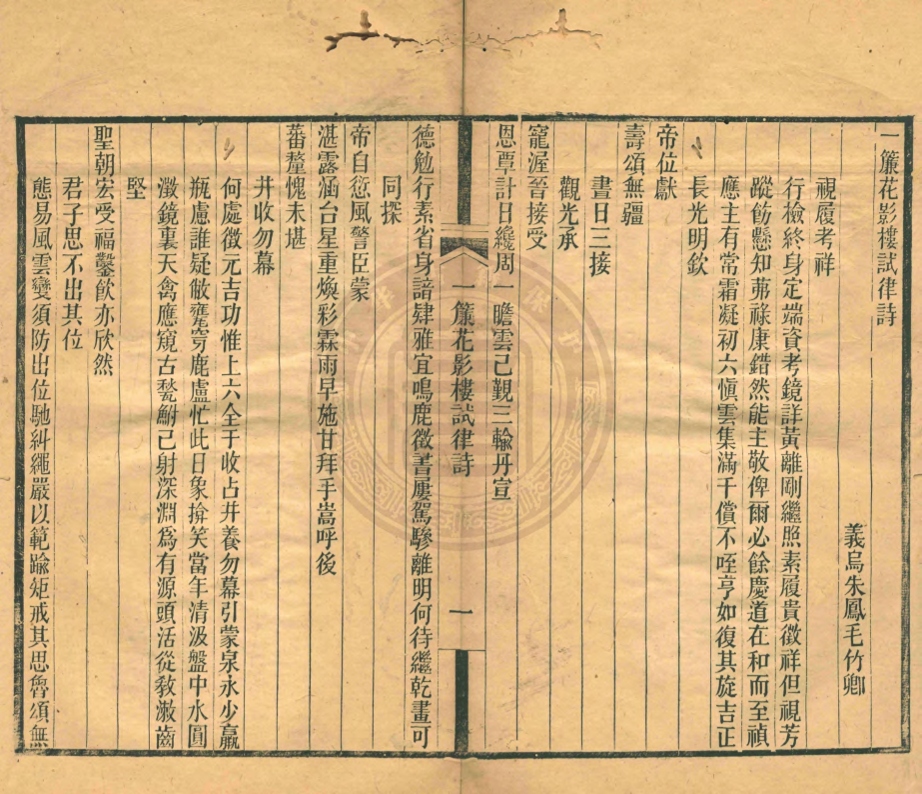 一簾花影樓試律詩
義烏朱鳳毛竹卿
視履考祥
行檢終身定端資考鏡詳黃離剛繼照素履貴徵祥但視芳
蹤飭懸知茀祿康錯然能主敬俾爾必餘慶道在和而至禎
應主有常霜凝初六愼雲集滿千償不咥亨如復其旋吉正
長光明欽
帝位獻
壽頌無疆
晝日三接
觀光承
寵渥晉接受
恩覃計日纔周一瞻雲已覲三綸丹宣
一簾花影樓試律詩
一
德勉行素省身諳肄雅宜鳴鹿徵書屢駕驂離明何待繼乾畫可
同探
帝自愆風警臣蒙
湛露涵台星重煥彩霖雨早施甘拜手嵩呼後
蕃釐愧未堪
井收勿幕
何處徵元吉功惟上六全于收占井養勿幕引蒙泉永少羸
瓶慮誰疑敝甕穿鹿盧忙此日象揜笑當年清汲盤中水圓
澂鏡裏天禽應窺古甃鮒已射深淵爲有源頭活從敎漱齒
堅
聖朝宏受福鑿飮亦欣然
君子思不出其位
態易風雲變須防出位馳糾繩嚴以範踰矩戒其思魯頌無